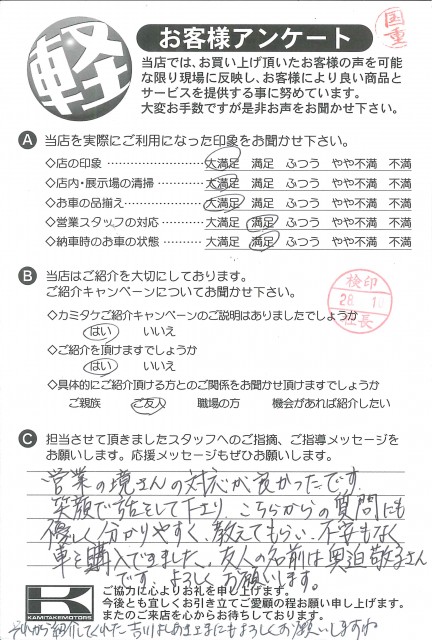 国重
軽
お客様アンケート
当店では、お買い上げ頂いたお客様の声を可能
な限り現場に反映し、お客様により良い商品と
サービスを提供する事に努めています。
大変お手数ですが是非お声をお聞かせ下さい。
A 当店を実際にご利用になった印象をお聞かせ下さい。
◇店の印象 大満足 満足 ふつう やや不満 不満
◇店内・展示場の清掃 大満足 満足 ふつう やや不満 不満
◇お車の品揃え 大満足 満足 ふつう やや不満 不満
◇営業スタッフの対応 大満足 満足 ふつう やや不満 不満
◇納車時のお車の状態 大満足 満足 ふつう やや不満 不満
B 当店はご紹介を大切にしております。
ご紹介キャンペーンについてお聞かせ下さい。
検印
28. 1
社長
◇カミタケご紹介キャンペーンのご説明はありましたでしょうか
はい いいえ
◇ご紹介を頂けますでしょうか
はい いいえ
◇具体的にご紹介頂ける方とのご関係をお聞かせ頂けますでしょうか
ご親族 ご友人 職場の方 機会があれば紹介したい
C 担当させて頂きましたスタッフへのご指摘、ご指導メッセージを
お願いします。応援メッセージもぜひお願いします。
営業の境さんの対応が良かったです。
笑顔で話をして下さり、こちらからの質問にも
優しく分かりやすく、教えてもらい、不安もなく
車を購入できました。友人の名前は奥迫敬子さん
です。よろしくお願いします。
K
KAMITAKEMOTORS
ご協力に心よりお礼を申し上げます。
今後とも宜しくお引き立てご愛顧の程お願い申し上げます。
またのご来店を心からお待ちしております。
それから紹介してくれた吉川
にもよろしくお願いします